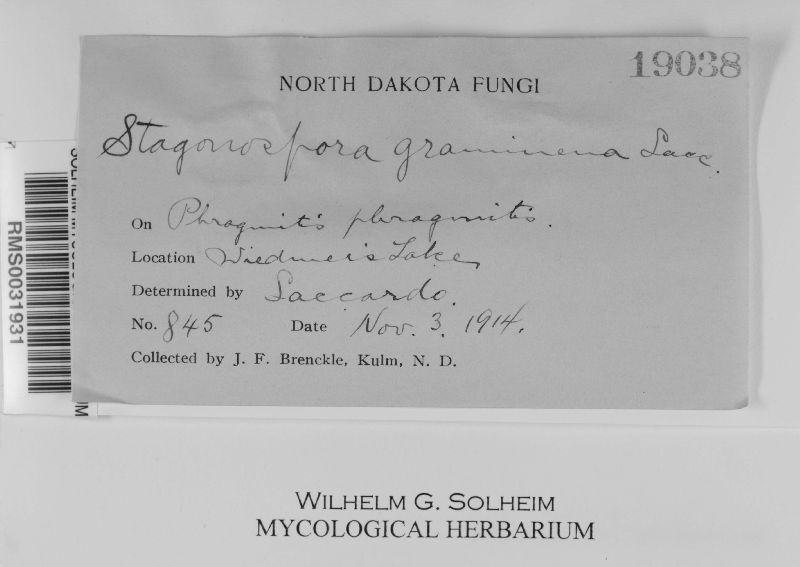 19038
NORTH DAKOTA FUNGI
Stagonospora graminena Sacc.
On Phragmitis phragmitis.
Location Wiedmeis Lake
Determined by Saccardo.
No. 845 Date Nov. 3, 1914.
Collected by J. F. Brenckle, Kulm, N. D.
RMS0031931
WILHELM G. SOLHEIM
MYCOLOGICAL HERBARIUM